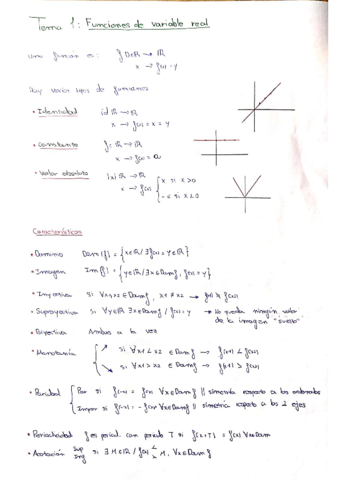 Tema 1: Funciones de variable real
Una función es: f: D⊂ℝ → ℝ
x → f(x) = y
Hay varios tipos de funciones
• Identidad id: ℝ → ℝ
x → f(x) = x = y
• Constante f: ℝ → ℝ
x → f(x) = a
• Valor absoluto |x|: ℝ → ℝ
x → f(x) { x si x>0
-x si x<0
Características
• Dominio Dom(f) = {x∈ℝ / ∃ f(x) = y∈ℝ}
• Imagen Im(f) = {y∈ℝ / ∃x∈Domf, f(x) = y}
• Inyectiva si ∀x1,x2 ∈ Domf, x1≠x2 → f(x1) ≠ f(x2)
• Suprayectiva si ∀y∈ℝ ∃x∈Domf / f(x) = y → No queda ningún valor
de la imagen "suelto"
• Biyectiva Ambas a la vez
• Monotonía { ↗ si ∀x1<x2 ∈ Domf → f(x1) < f(x2)
↘ si ∀x1>x2 ∈ Domf → f(x1) > f(x2)
• Paridad { Par si f(-x) = f(x) ∀x∈Domf // simetría respecto a las ordenadas
Impar si f(-x) = -f(x) ∀x∈Domf // simetría respecto a los 2 ejes
• Periodicidad f es period. con periodo T si f(x+T) = f(x) ∀x∈Dom
• Acotación Sup
Inf si ∃ M∈ℝ / f(x) ≤ ≥ M, ∀x∈Domf